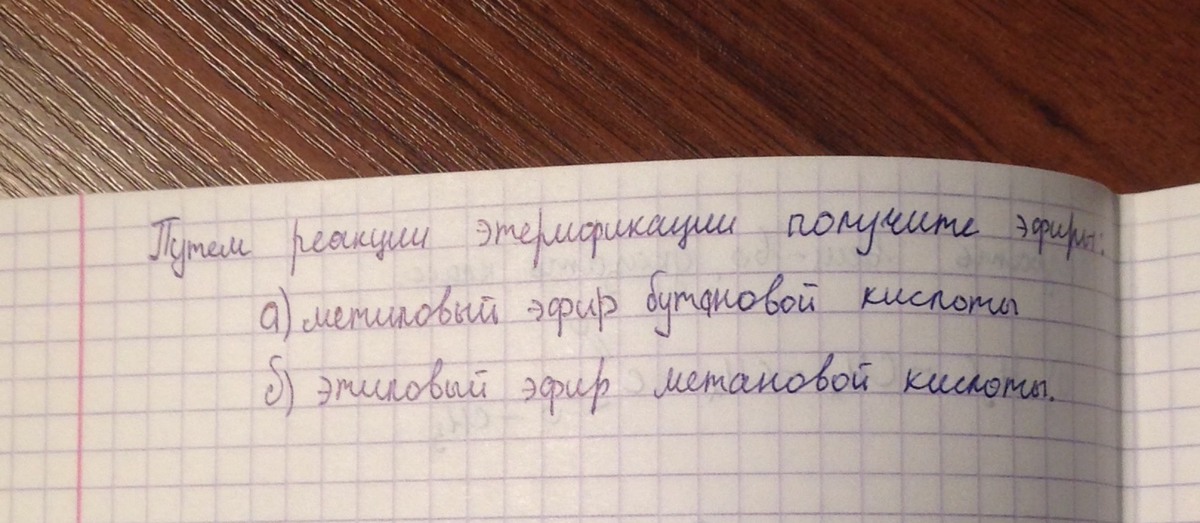 Путем реакции этерификации получите эфиры:
а) метиловый эфир бутановой кислоты
б) этиловый эфир метановой кислоты.